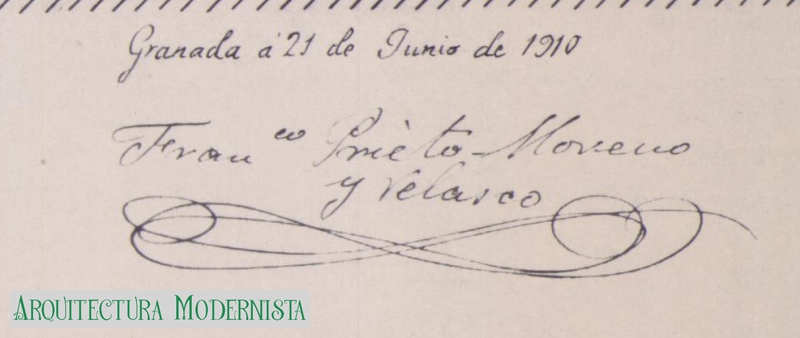 Granada á 21 de Junio de 1910
Franco Prieto-Moreno
y Velasco
ARQUITECTURA MODERNISTA